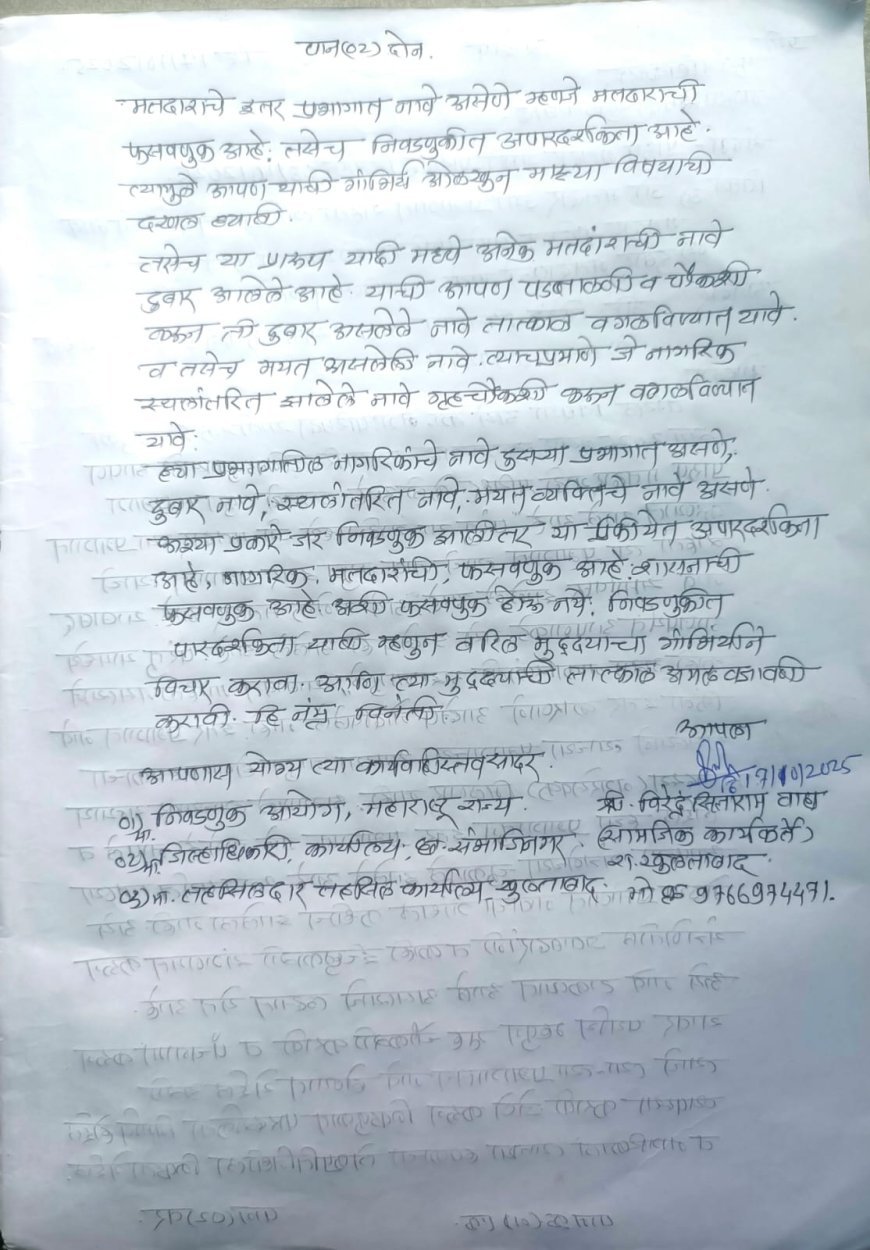 पान(०२) दोन.
मतदाराचे इतर प्रभागात नावे असेणे म्हणजे मतदाराची
फसवणुक आहे. तसेच निवडणुकीत अपारदर्शकता आहे.
त्यामुळे आपण याची गांभिर्य ओळखुन माझ्या विषयाची
दखल घ्यावी.
तसेच या प्रारूप यादी मध्ये अनेक मतदांराची नावे
दुबार आलेले आहे. याची आपण पडताळणी व चौकशी
करून ती दुबार असलेले नावे तात्काळ वगळविण्यात यावे.
व तसेच मयत असलेली नावे. त्याचप्रमाणे जे नागरिक
स्थलांतरित झालेले नावे गृहचौकशी करून वगळविण्यात
यावे.
ह्या प्रभागातील नागरिकांचे नावे दुसऱ्या प्रभागात असणे,
दुबार नावे, स्थलांतरित नावे, मयत व्यक्तिचे नावे असणे.
कश्या प्रकारे जर निवडणुक झालीतर या प्रकीयेत अपारदर्शकता
आहे, नागरिक, मतदारांची, फसवणुक आहे. शासनाची
फसवणुक आहे अशी फसवणुक होऊ नये. निवडणुकीत
पारदर्शकता यावी म्हणुन वरिल मुद्दयाचा गांभिर्याने
विचार करावा. आणि त्या मुद्दयांची तात्काळ अंमल बजावणी
करावी. हि नंम्र विनंती
आपला
आपणास योग्य त्या कार्यवाहिस्तव सादर.
दि 17/10/2025
०१) मा. निवडणुक आयोग, महाराष्ट्र राज्य.
श्री. विरेंद्र सिताराम वाघ
०२) मा. जिल्हाधिकारी, कार्यालय, छ. संभाजिनगर.
(सामजिक कार्यकर्ते)
रा. खुलताबाद.
०३) मा. तहसिलदार तहसिल कार्यालय खुलताबाद.
मो 9766974471.